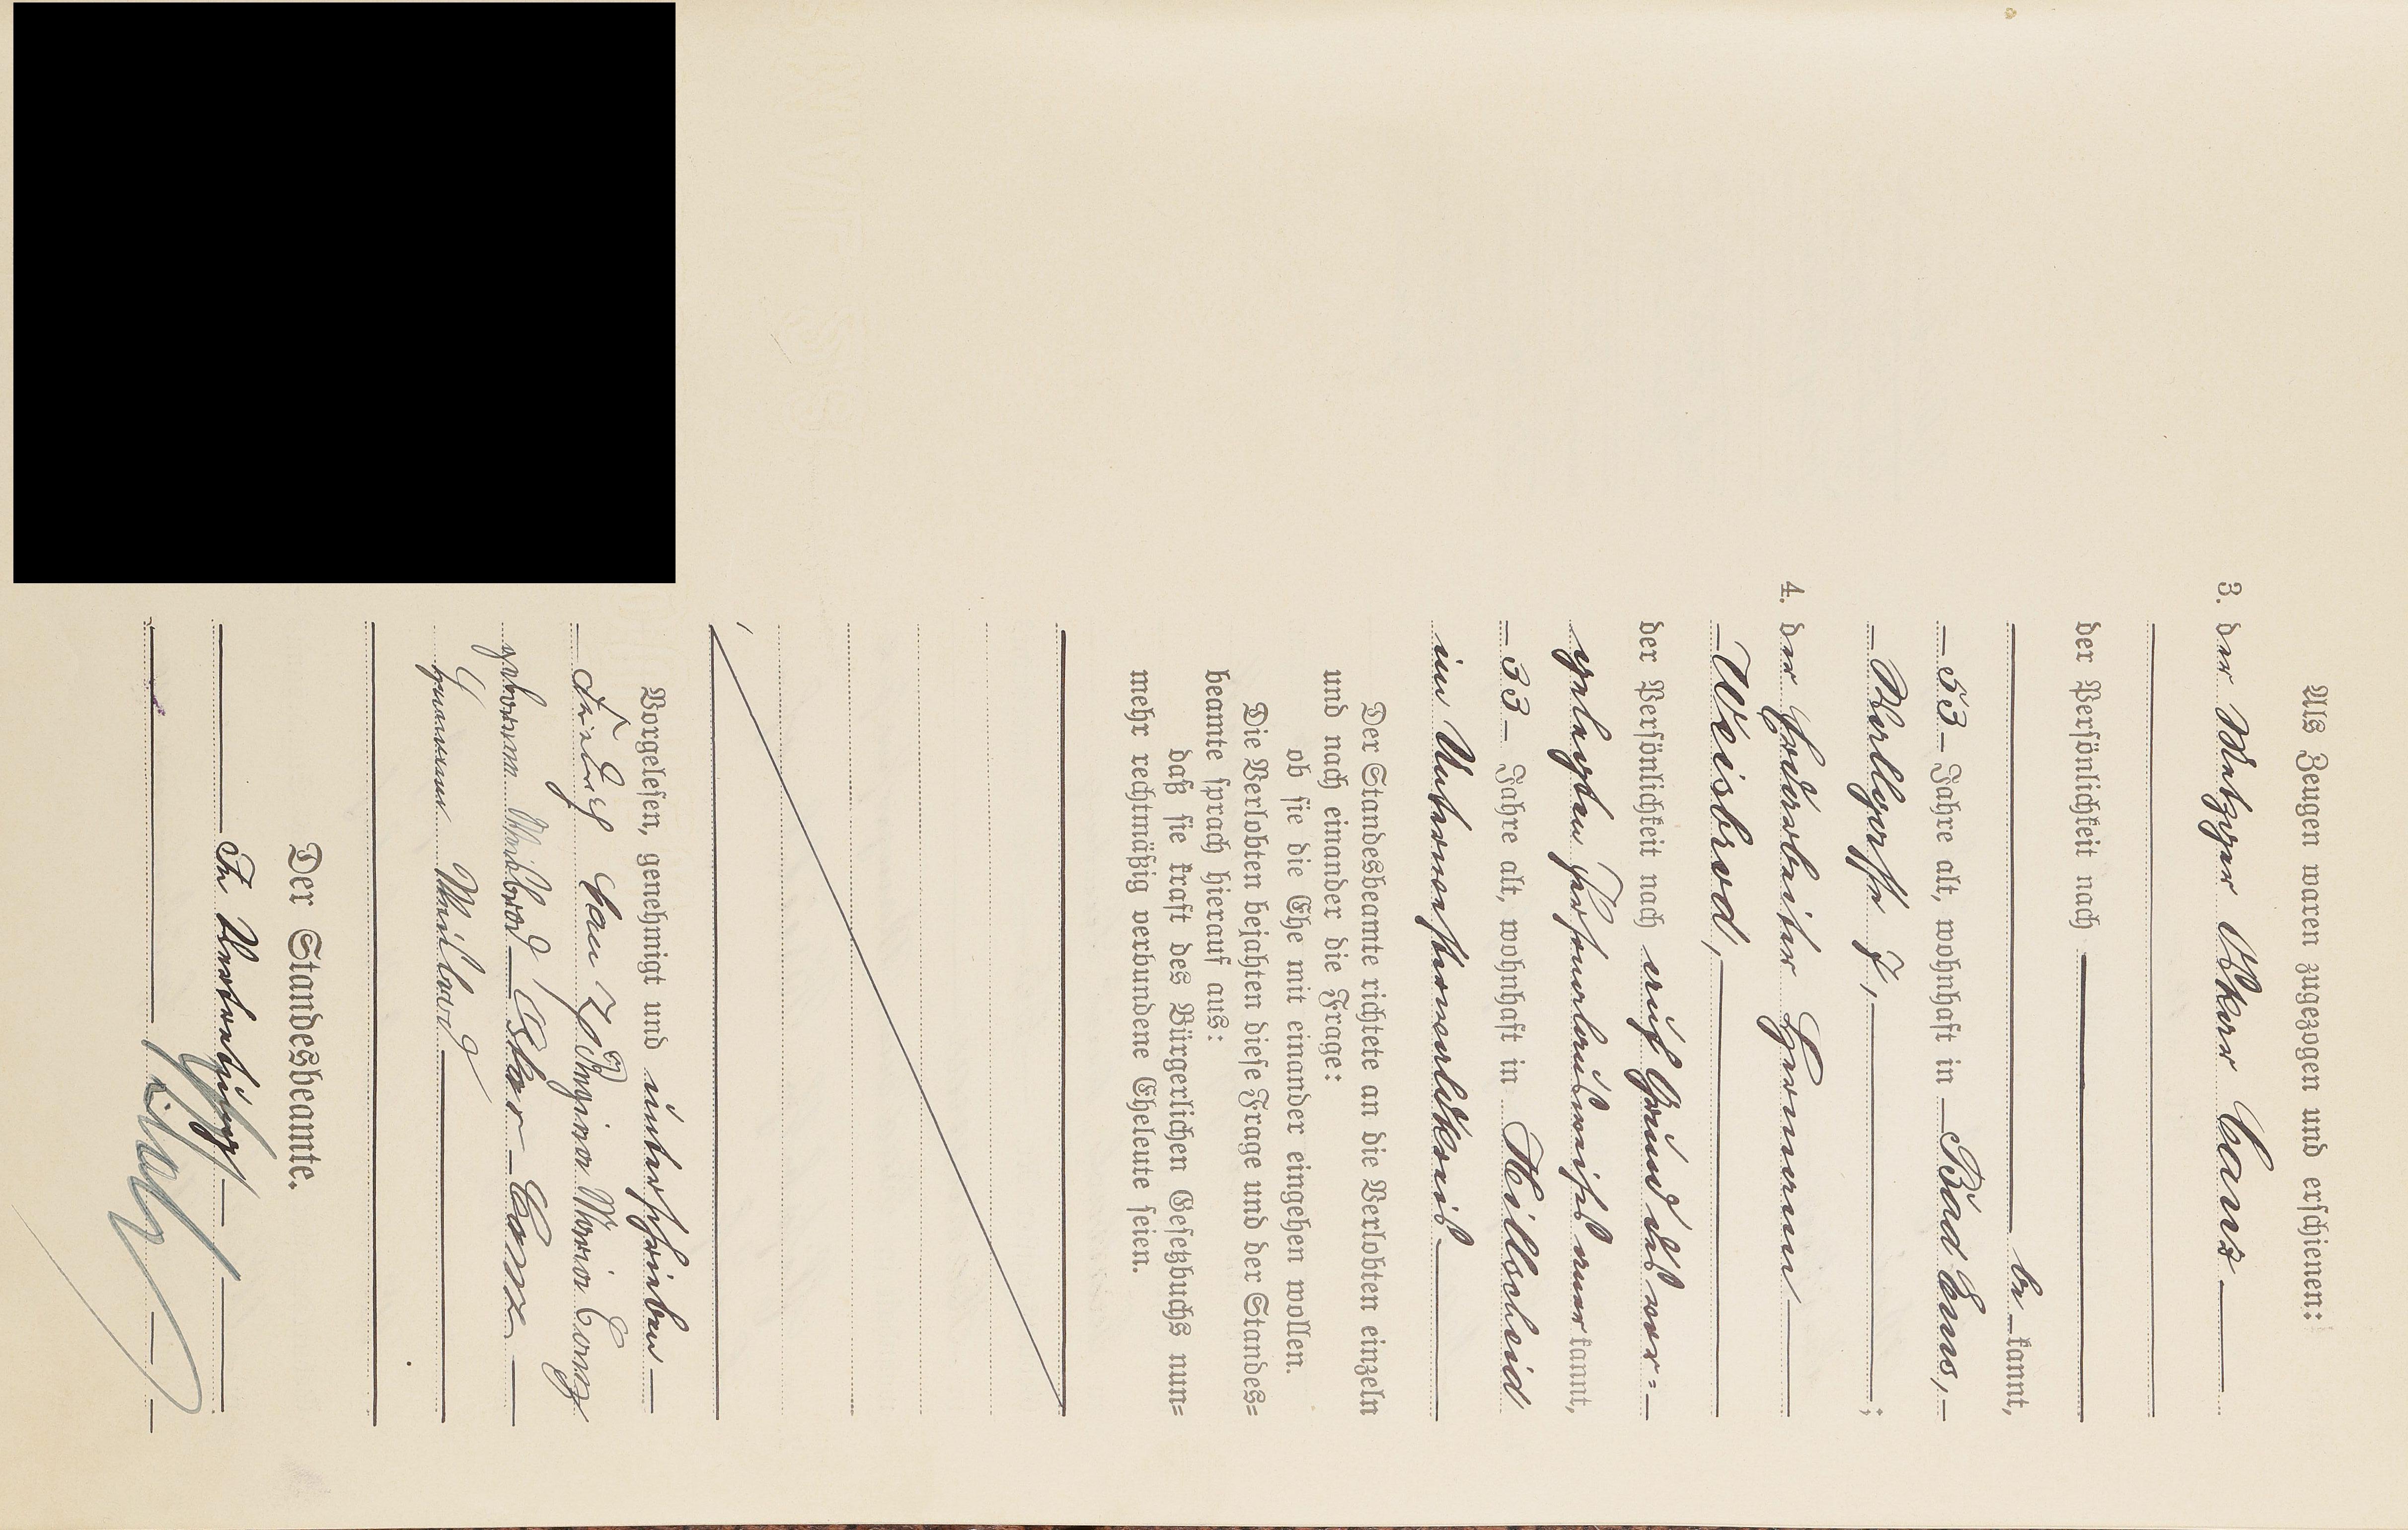 Als Zeugen waren zugezogen und erschienen:
3. der Metzger Oskar Canz
der Persönlichkeit nach
be kannt,
53 Jahre alt, wohnhaft in Bad Ems,
7,
4. der Hermann
Weisbrod,
der Persönlichkeit nach auf Grund des vor=
gelegten kannt,
33 Jahre alt, wohnhaft in Hillscheid
im Unterwesterwaldkreis
Der Standesbeamte richtete an die Verlobten einzeln
und nach einander die Frage:
ob sie die Ehe mit einander eingehen wollen.
Die Verlobten bejahten diese Frage und der Standes=
beamte sprach hierauf aus:
daß sie kraft des Bürgerlichen Gesetzbuchs nun=
mehr rechtmäßig verbundene Eheleute seien.
Vorgelesen, genehmigt und unterschrieben
Maria
geborene Weisbrod Oskar
Hermann Weisbrod
Der Standesbeamte.
In Vertretung